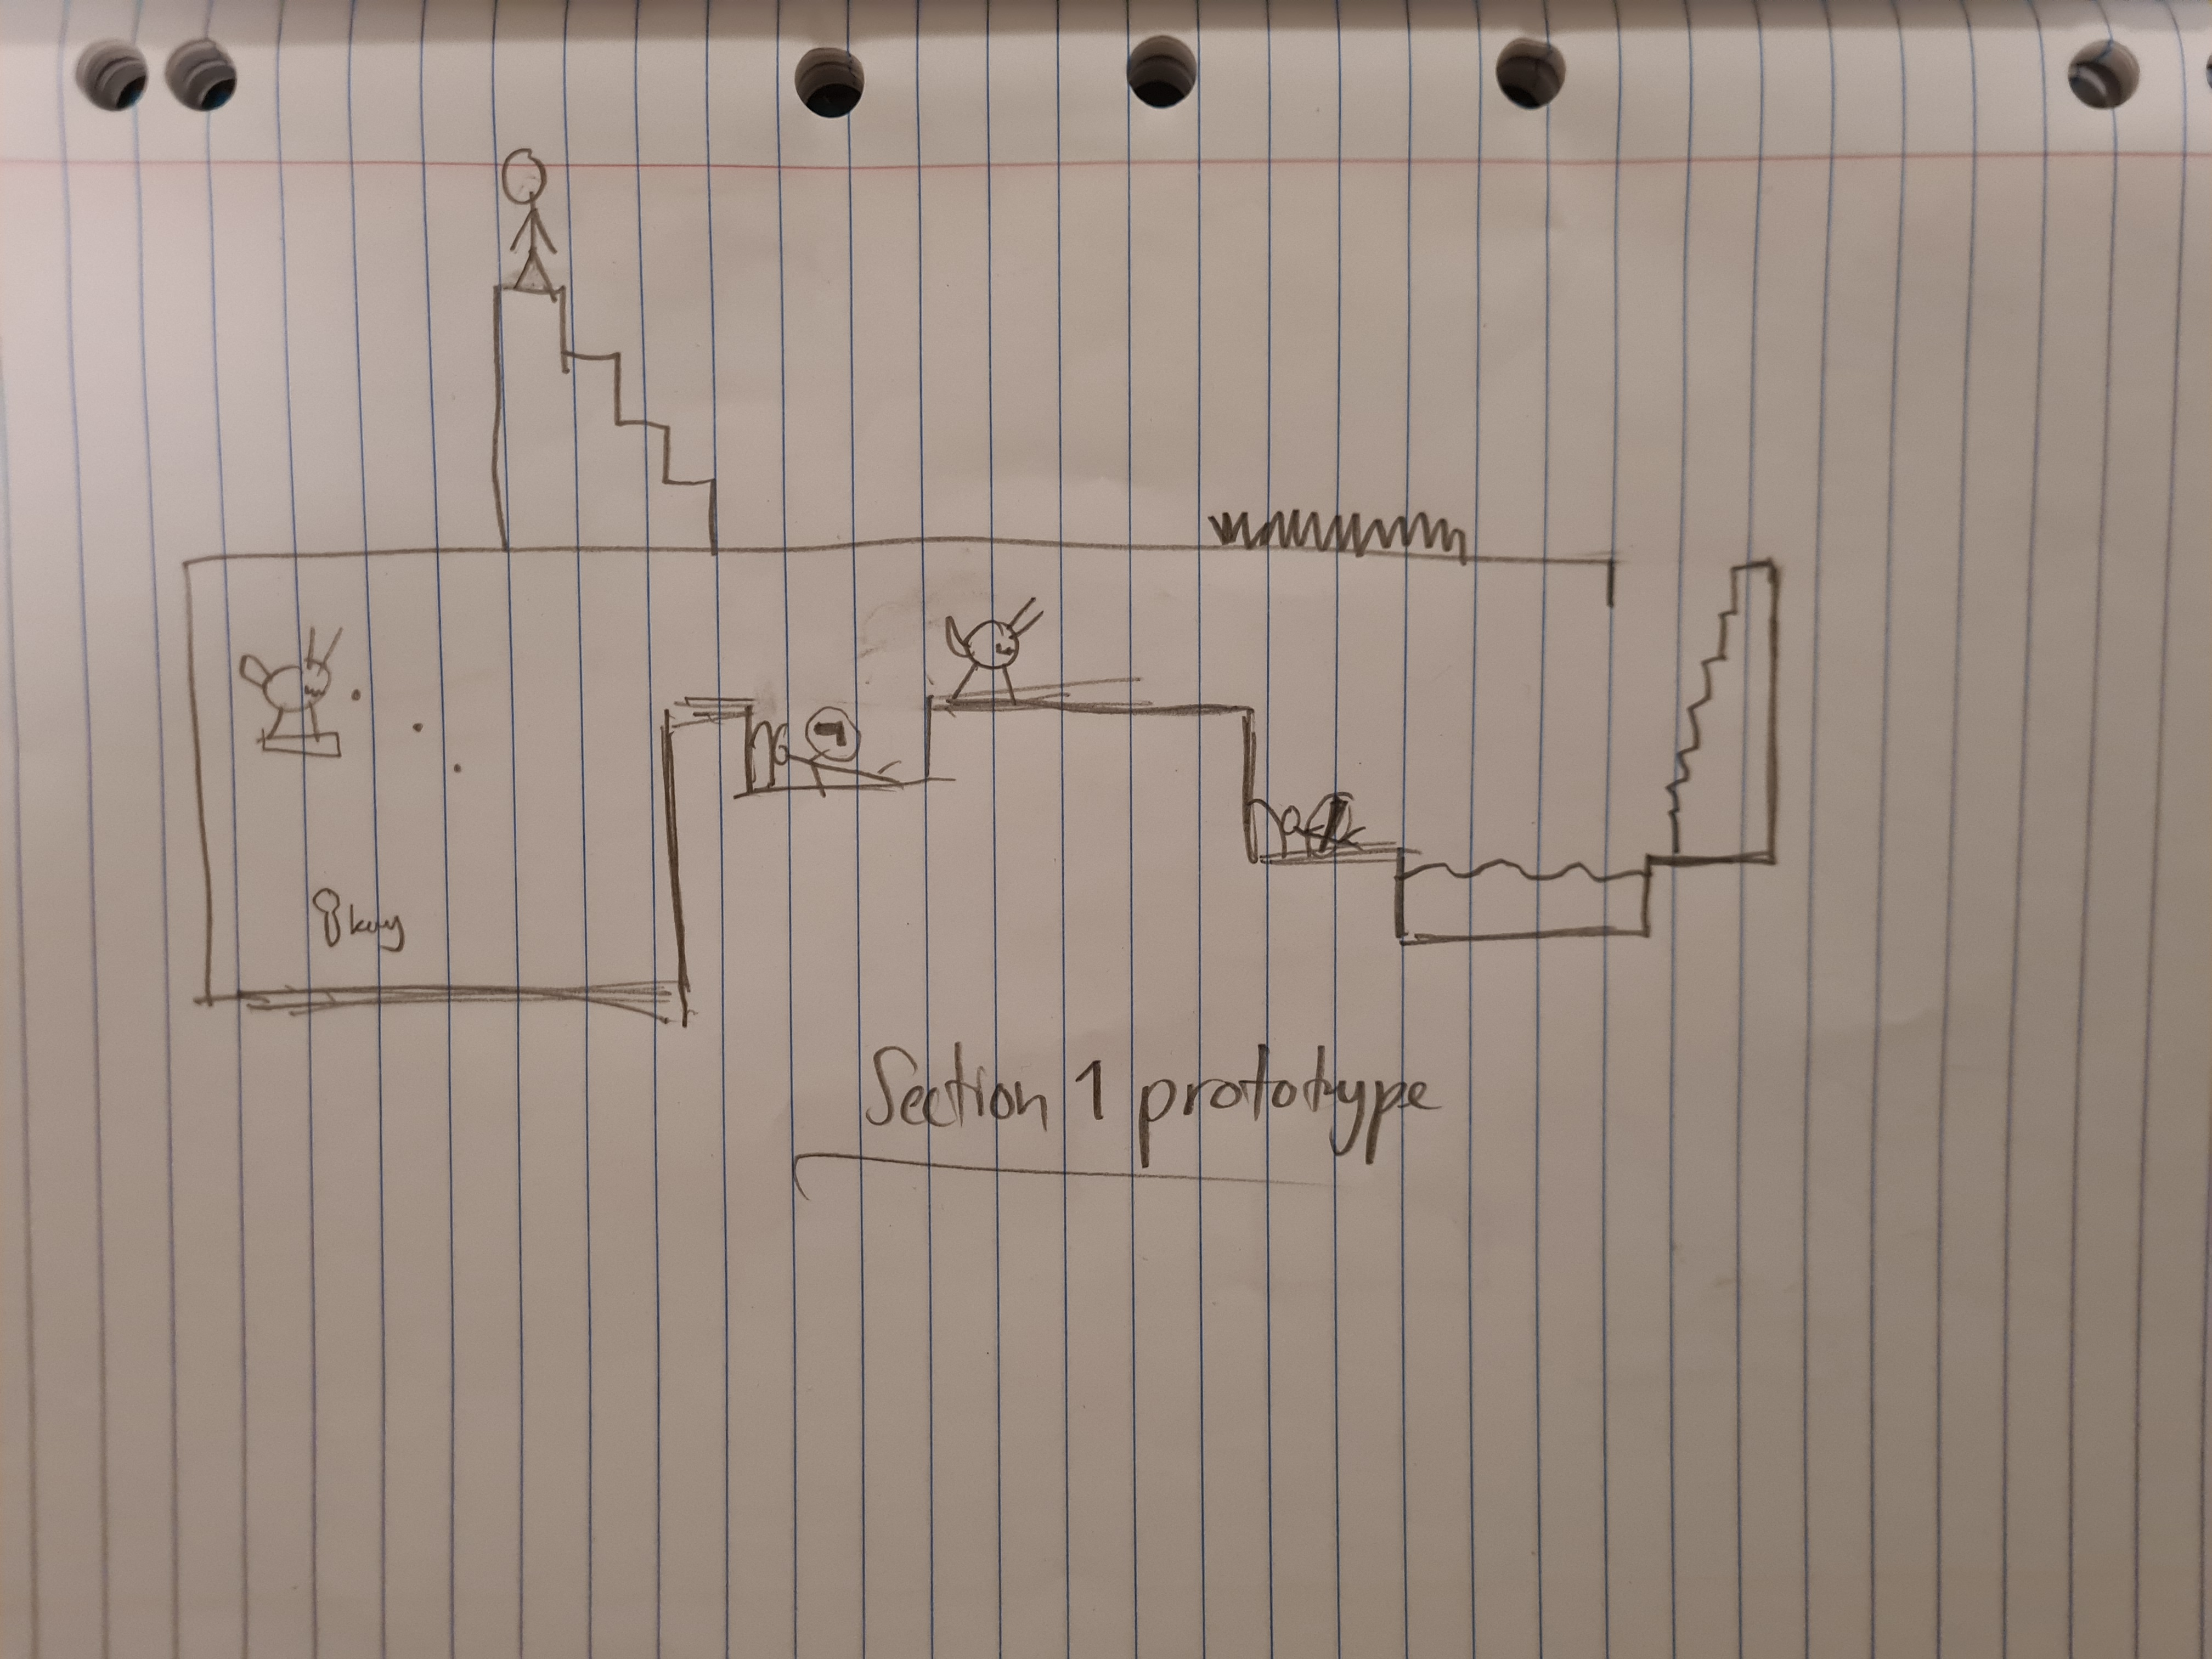 key
Section 1 prototype